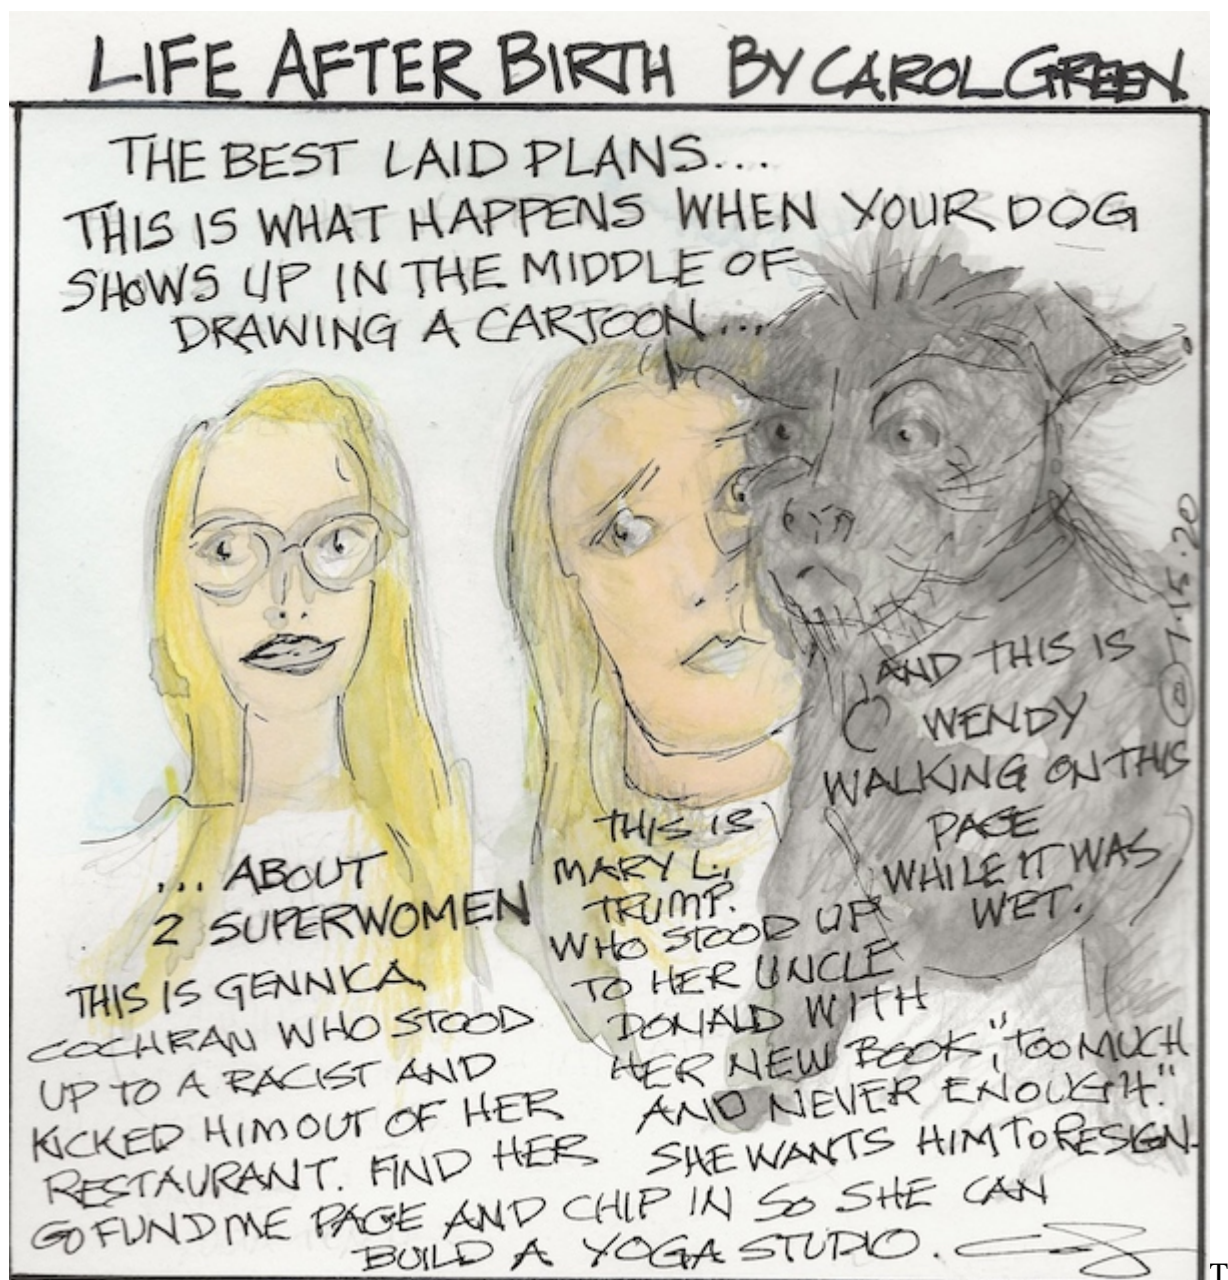 LIFE AFTER BIRTH BY CAROL GREEN
THE BEST LAID PLANS....
THIS IS WHAT HAPPENS WHEN YOUR DOG
SHOWS UP IN THE MIDDLE OF
DRAWING A CARTOON...
... ABOUT
2 SUPERWOMEN
THIS IS GENNICA
COCHRAN WHO STOOD
UP TO A RACIST AND
KICKED HIM OUT OF HER
RESTAURANT. FIND HER
GO FUND ME PAGE AND CHIP IN SO SHE CAN
BUILD A YOGA STUDIO.
THIS IS
MARY L.,
TRUMP.
WHO STOOD UP
TO HER UNCLE
DONALD WITH
HER NEW BOOK, "TOO MUCH
AND NEVER ENOUGH."
SHE WANTS HIM TO RESIGN.
AND THIS IS
WENDY
WALKING ON THIS
PAGE
WHILE IT WAS
WET.
© 7.15.20
T